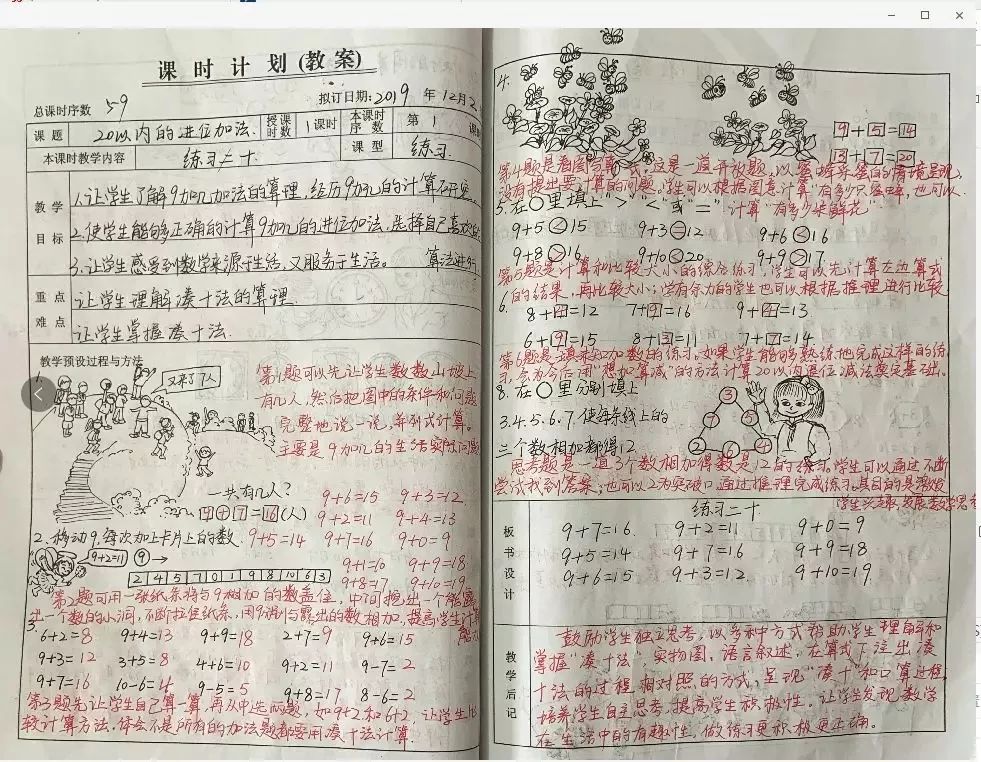 课时计划(教案)
总课时序数 59 拟订日期:2019年12月2
课题 20以内的进位加法. 授课时数 1课时 本课时序数 第1课时
本课时教学内容 练习二十. 课型 练习.
教学目标
1.让学生了解9加几加法的算理,经历9加几的计算
2.使学生能够正确的计算9加几的进位加法,选择自己喜欢的
3.让学生感受到数学来源于生活,又服务于生活。 算法进行
重点 让学生理解凑十法的算理.
难点 让学生掌握凑十法.
教学预设过程与方法
1.
又来了7人
第1题可以先让学生数数山坡上
有几人,然后把图中的条件和问题
完整地说一说,并列式计算。
主要是9加几的生活实际问题
一共有几人?
9+7=16(人)
9+6=15 9+3=12
9+2=11 9+4=13
2.移动9,每次加上卡片上的数.
9+5=14 9+7=16 9+0=9
9+1=10 9+9=18
9+8=17 9+10=19
9+2=11 9→
2 4 5 7 0 1 9 8 10 6 3
第2题可用一张纸条将与9相加的数盖住,中间挖出一个能露
出一个数的小洞,不断拉住纸条,用9减与露出的数相加,提高学生计算
能力
3.
6+2=8 9+4=13 9+9=18 2+7=9 9+6=15
9+3=12 3+5=8 4+6=10 9+2=11 9-7=2
9+7=16 10-6=4 9-5=5 9+8=17 8-6=2
第3题先让学生自己算一算,再从中选两题,如9+2和6+2,让学生比
较计算方法,体会不是所有的加法题都要用凑十法计算.
4.
9+5=14
13+7=20
第4题是看图写算式,这是一道开放题,以蜜蜂采蜜的情境呈现,
没有提出要计算的问题,学生可以根据图意计算"有多少只蜜蜂,也可以
计算"有多少朵鲜花"
5.在○里填上">""<"或"="
9+5<15 9+3=12 9+6<16
9+8>16 9+10<20 9+9>17
第5题是计算和比较大小的综合练习,学生可以先计算左边算式
的结果,再比较大小;学有余力的学生也可以根据推理进行比较
6.
8+4=12 7+9=16 9+4=13
6+9=15 8+3=11 7+7=14
第6题是填未知加数的练习。如果学生能够熟练地完成这样的练
习,会为今后用"想加算减"的方法计算20以内退位减法奠定基础.
8.在○里分别填上
3.4.5.6.7.使每条线上的
三个数相加都得12
3
7 5
2 6 4
思考题是一道3个数相加得数是12的练习,学生可以通过不断
尝试找到答案;也可以2为突破口通过推理完成练习.其目的是激发
学生兴趣,发展数学思考
板书设计
练习二十.
9+7=16. 9+2=11 9+0=9
9+5=14 9+7=16 9+9=18
9+6=15 9+3=12. 9+10=19.
教学后记
鼓励学生独立思考,以多种方式帮助学生理解和
掌握"凑十法",实物图、语言叙述、在算式下注出凑
十法的过程相对照的方式,呈现"凑十"和口算过程,
培养学生自主思考,提高学生积极性。让学生发现数学
在生活中的有趣性,做练习更积极更正确。